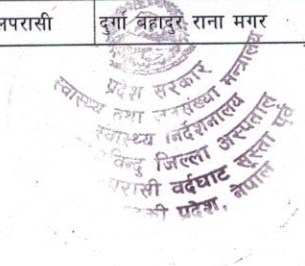 लपरासी दुर्गा बहादुर राना मगर
प्रदेश सरकार
स्वास्थ्य तथा जनसंख्या मन्त्रालय
स्वास्थ्य निर्देशनालय
विन्दु जिल्ला अस्पताल
परासी वर्दघाट सुस्ता पूर्व
प्रदेश, नेपाल